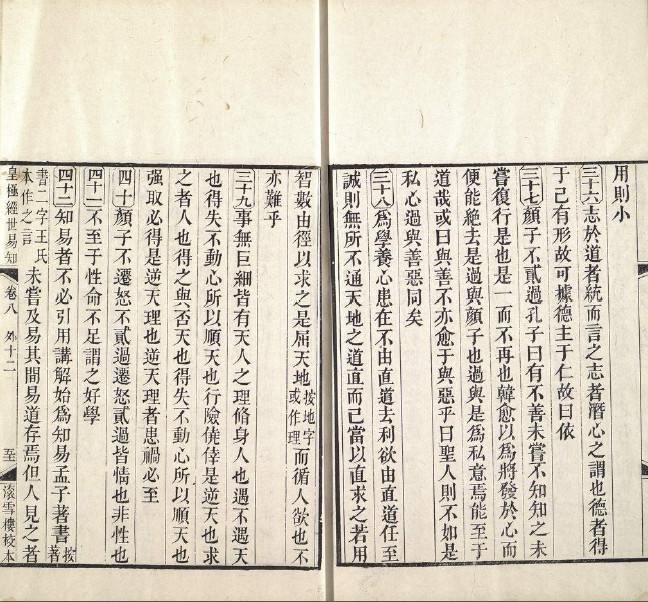 用則小
三十六志於道者統而言之志者潛心之謂也德者得
于己有形故可據德主于仁故曰依
三十七顏子不貳過孔子曰有不善未嘗不知知之未
嘗復行是也是一而不再也韓愈以為將發於心而
便能絶去是過與顏子也過與是為私意焉能至于
道哉或曰與善不亦愈于與惡乎曰聖人則不如是
私心過與善惡同矣
三十八為學養心患在不由直道去利欲由直道任至
誠則無所不通天地之道直而已當以直求之若用
智數由徑以求之是屈天地按地字或作理而循人欲也不
亦難乎
三十九事無巨細皆有天人之理脩身人也遇不遇天
也得失不動心所以順天也行險僥倖是逆天也求
之者人也得之與否天也得失不動心所以順天也
强取必得是逆天理也逆天理者患禍必至
四十顏子不遷怒不貳過遷怒貳過皆情也非性也
四十一不至于性命不足謂之好學
四十二知易者不必引用講解始為知易孟子著書按著
書二字王氏本作之言未嘗及易其間易道存焉但人見之者
皇極經世易知 卷八 外十二 至 滾雪樓校本